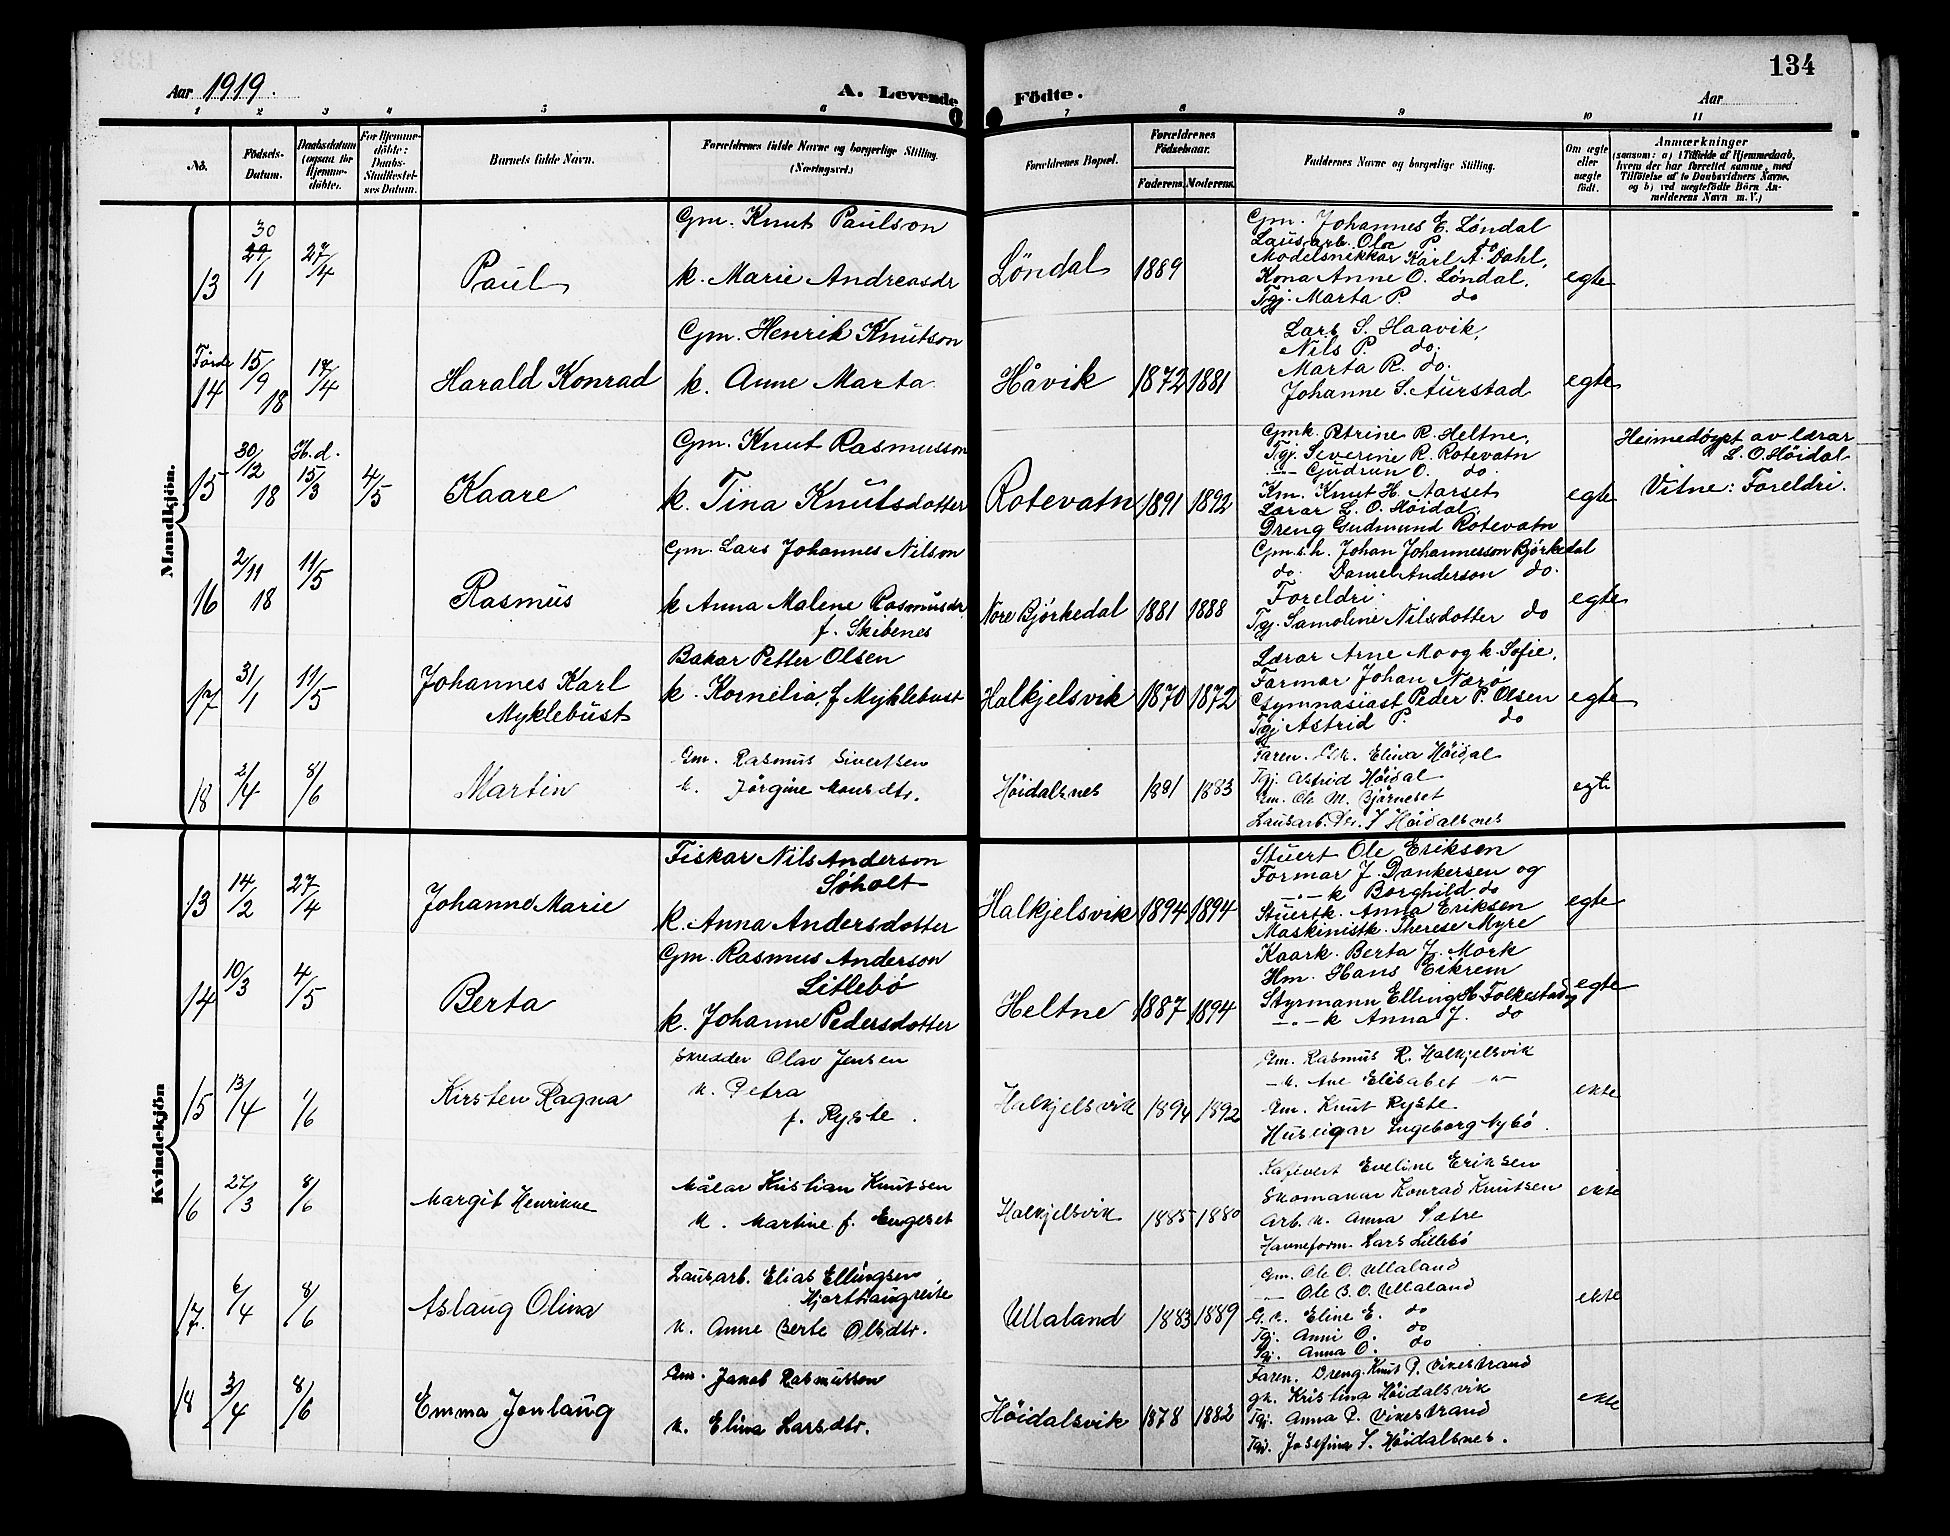 134
Aar 1919.
A. Levende Födte.
Aar
1 2 3 4 5 6 7 8 9 10 11
No.
Födsels-Datum.
Daabsdatum (ogsaa för Hjemmedöbte).
For Hjemmedöbte: Daabs-Stadfestelses Datum.
Barnets fulde Navn.
Forældrenes fulde Navne og borgerlige Stilling. (Næringsvei.)
Forældrenes Bopæl.
Forældrenes Födselsaar.
Faderens. Moderens.
Faddernes Navne og borgerlige Stilling.
Om ægte eller uægte födt.
Anmærkninger
(saasom: a) i Tilfælde af Hjemmedaab, hvem der har forrettet samme, med Tilföielse af to Daabsvidners Navne, og b) ved uægtefödte Börn Anmelderens Navn m. V.)
Mandkjön.
13
30
29/1
27/4
Paul
Gm. Knut Paulson
k. Marie Andreasdr
Löndal
1889
Gm. Johannes E. Löndal
Lausarb. Ola P. do
Modelsnikkar Karl A. Dahl,
Kona Anne O. Löndal,
Tgj. Marta P. do
egte
Förde
14
15/9 18
17/4
Harald Konrad
Gm. Henrik Knutson
k. Anne Marta
Håvik
1872 1881
Lars S. Haavik,
Nils P. do.
Marta R. do.
Johanne S. Aurstad
egte
15
30/12 18
H.d. 15/3
4/5
Kaare
Gm. Knut Rasmusson
k. Tina Knutsdotter
Rotevatn
1891 1892
Gmk. Petrine R. Heltne,
Tgj. Severine R. Rotevatn
-"- Gudrun O. do.
Km. Knut H. Aarset
Lærar L. O. Höidal,
Dreng Gudmund Rotevatn
egte
Heimedöypt av lærar
L. O. Höidal
Vitne: Foreldri.
16
2/11 18
11/5
Rasmus
Gm. Lars Johannes Nilson
k Anna Malene Rasmusdr
f. Skibenes
Nore Björkedal
1881 1888
Gm.s.h. Johan Johannesson Björkedal
do. Daniel Anderson do.
Foreldri.
Tgj. Samoline Nilsdotter do
egte
17
31/1
11/5
Johannes Karl
Myklebust
Bakar Petter Olsen
k. Kornelia, f Myklebust
Halkjelsvik
1870 1872
Lærar Arne Mo og k. Sofie,
Farmar Johan Nærö
Gymnasiast Peder P. Olsen
Tgj Astrid P. do
egte
18
2/4
8/6
Martin
Gm. Rasmus Sivertsen
k. Jörgine Monsdtr.
Höidalsnes
1881 1883
Faren. Elina Höidal
Tgj Astrid Höidal
Gm. Ole M. Björneset
Lausarb. J Höidalsnes
egte
Kvindekjön
13
14/2
27/4
Johanne Marie
Fiskar Nils Anderson
Söholt
k. Anna Andersdotter
Halkjelsvik
1894 1894
Stuert Ole Eriksen
Formar J. Dankersen og
-"- k Borghild do
Stuertk. Anna Eriksen
Maskinistk. Therese Myre
egte
14
10/3
4/5
Berta
Gm. Rasmus Anderson
Litlebö
k. Johanne Pedersdotter
Heltne
1887 1894
Kaark. Berta J. Mork
Hm. Hans Eikrem
Styrmann Elling H. Folkestad og
-"- k Anna J. do
egte
15
13/4
1/6
Kirsten Ragna
Skredder Olav Jensen
k. Petra
f. Ryste.
Halkjelsvik
1894 1892
Gm. Rasmus R. Halkjelsvik
- k. Ane Elisabet -"-
Gm. Knut Ryste
Huseigar Ingeborg Nybö.
ekte
16
27/3
8/6
Margit Henrikke
Målar Kristian Knutsen
k. Martine f. Engeset
Halkjelsvik
1885 1880
Kafevert Eveline Eriksen
Skomakar Konrad Knutsen
Arb. k. Anna Sætre
Havneform. Lars Lillebö
ekte
17.
6/4
8/6
Aslaug Olina
Lausarb. Elias Ellingsen
Hjorthaugreite
k. Anne Berte Olsdtr.
Ullaland
1883 1889
Gm. Ole O. Ullaland
-"- Ole B. O. Ullaland
G. k. Eline E. do
Tgj. Anni O. do
Tgj. Anna O. do
ekte
18
3/4
8/6
Emma Jonlaug
Gm. Jakob Rasmussen
k. Elina Larsdtr.
Höidalsvik
1878 1882
Faren. Dreng. Knut P. Vikestrand
gk. Kristina Höidalsvik
Tgj. Anna P. Vikestrand
Tgj. Josefina S. Höidalsnes.
ekte